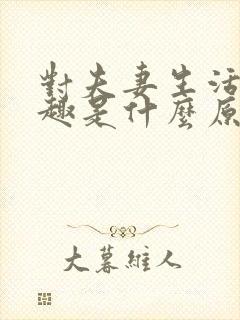 對夫妻生活
趣是什麼原
大暮維人